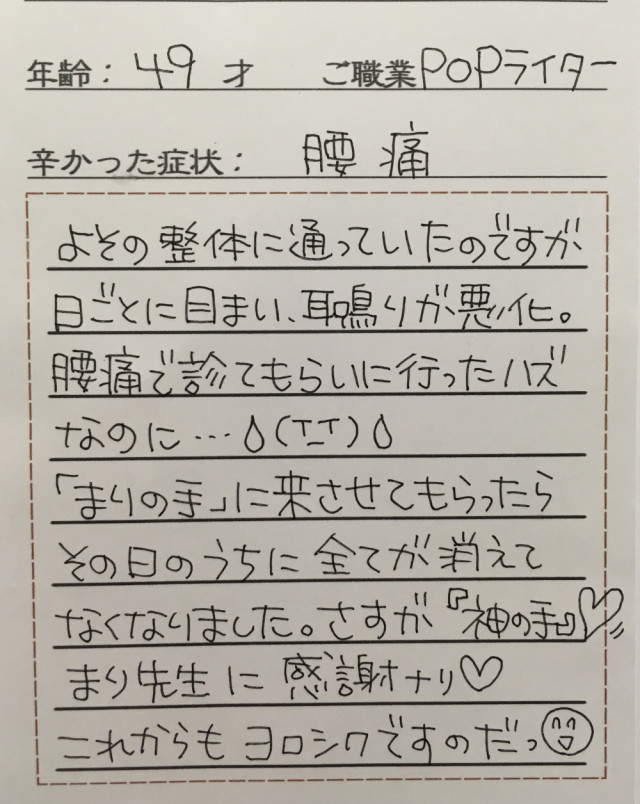 年齢：49才　ご職業POPライター
辛かった症状：腰痛
よその整体に通っていたのですが
日ごとに目まい、耳鳴りが悪化。
腰痛で診てもらいに行ったハズ
なのに…(T_T)
「まりの手」に来させてもらったら
その日のうちに全てが消えて
なくなりました。さすが『神の手』♡
まり先生に感謝ナリ♡
これからもヨロシクですのだっ